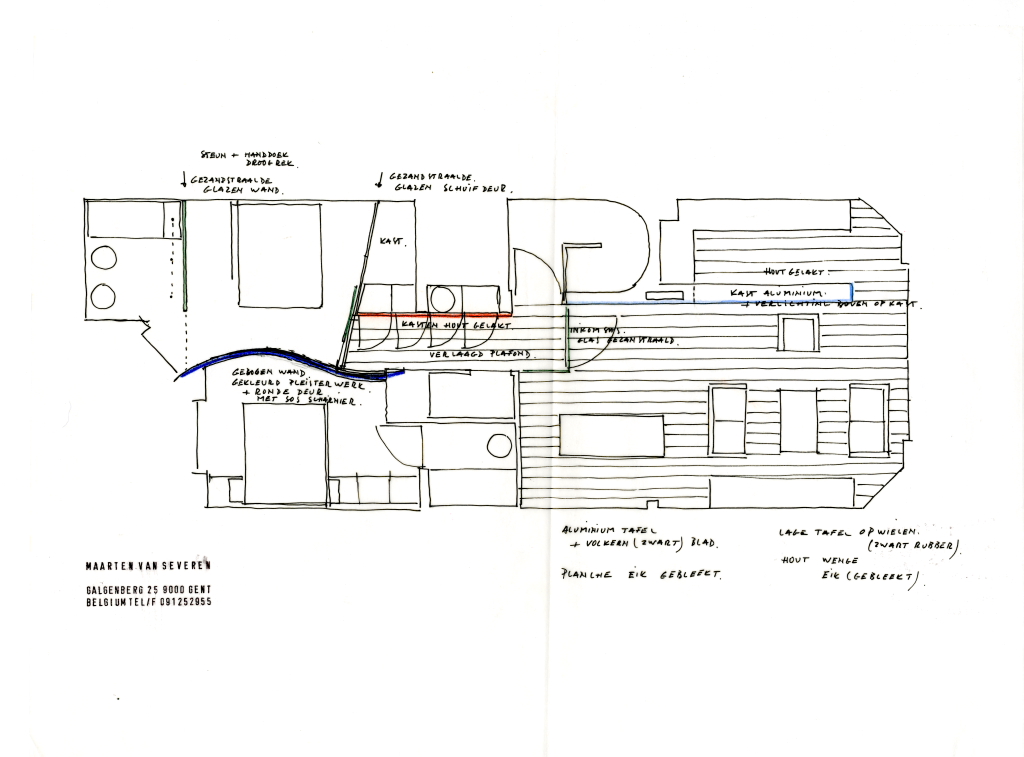 STEUN + HANDDOEK
DROOGREK.
GEZANDSTRAALDE
GLAZEN WAND.
GEZANDSTRAALDE.
GLAZEN SCHUIFDEUR.
KAST.
HOUT GELAKT.
KAST ALUMINIUM.
+ VERLICHTING BOVEN OP KAST.
KASTEN HOUT GELAKT.
INKOM SAS.
GLAS GEZANSTRAALD.
VERLAAGD PLAFOND.
GEBOGEN WAND.
GEKLEURD PLEISTERWERK.
+ RONDE DEUR
MET SOS SCHARNIER.
ALUMINIUM TAFEL
+ VOLKERN (ZWART) BLAD.
PLANCHE EIK GEBLEEKT.
LAGE TAFEL OP WIELEN.
(ZWART RUBBER).
HOUT WENGE
EIK (GEBLEEKT).
MAARTEN VAN SEVEREN
GALGENBERG 25 9000 GENT
BELGIUM TEL/F 091252955